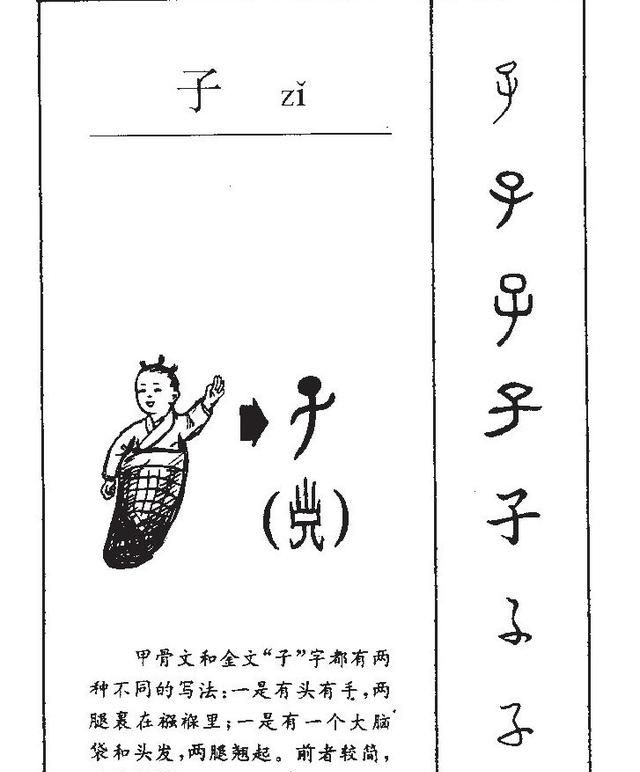 子 zǐ
甲骨文和金文“子”字都有两
种不同的写法：一是有头有手，两
腿裹在襁褓里；一是有一个大脑
袋和头发，两腿翘起。前者较简，
子
子
子
子
子
子
子